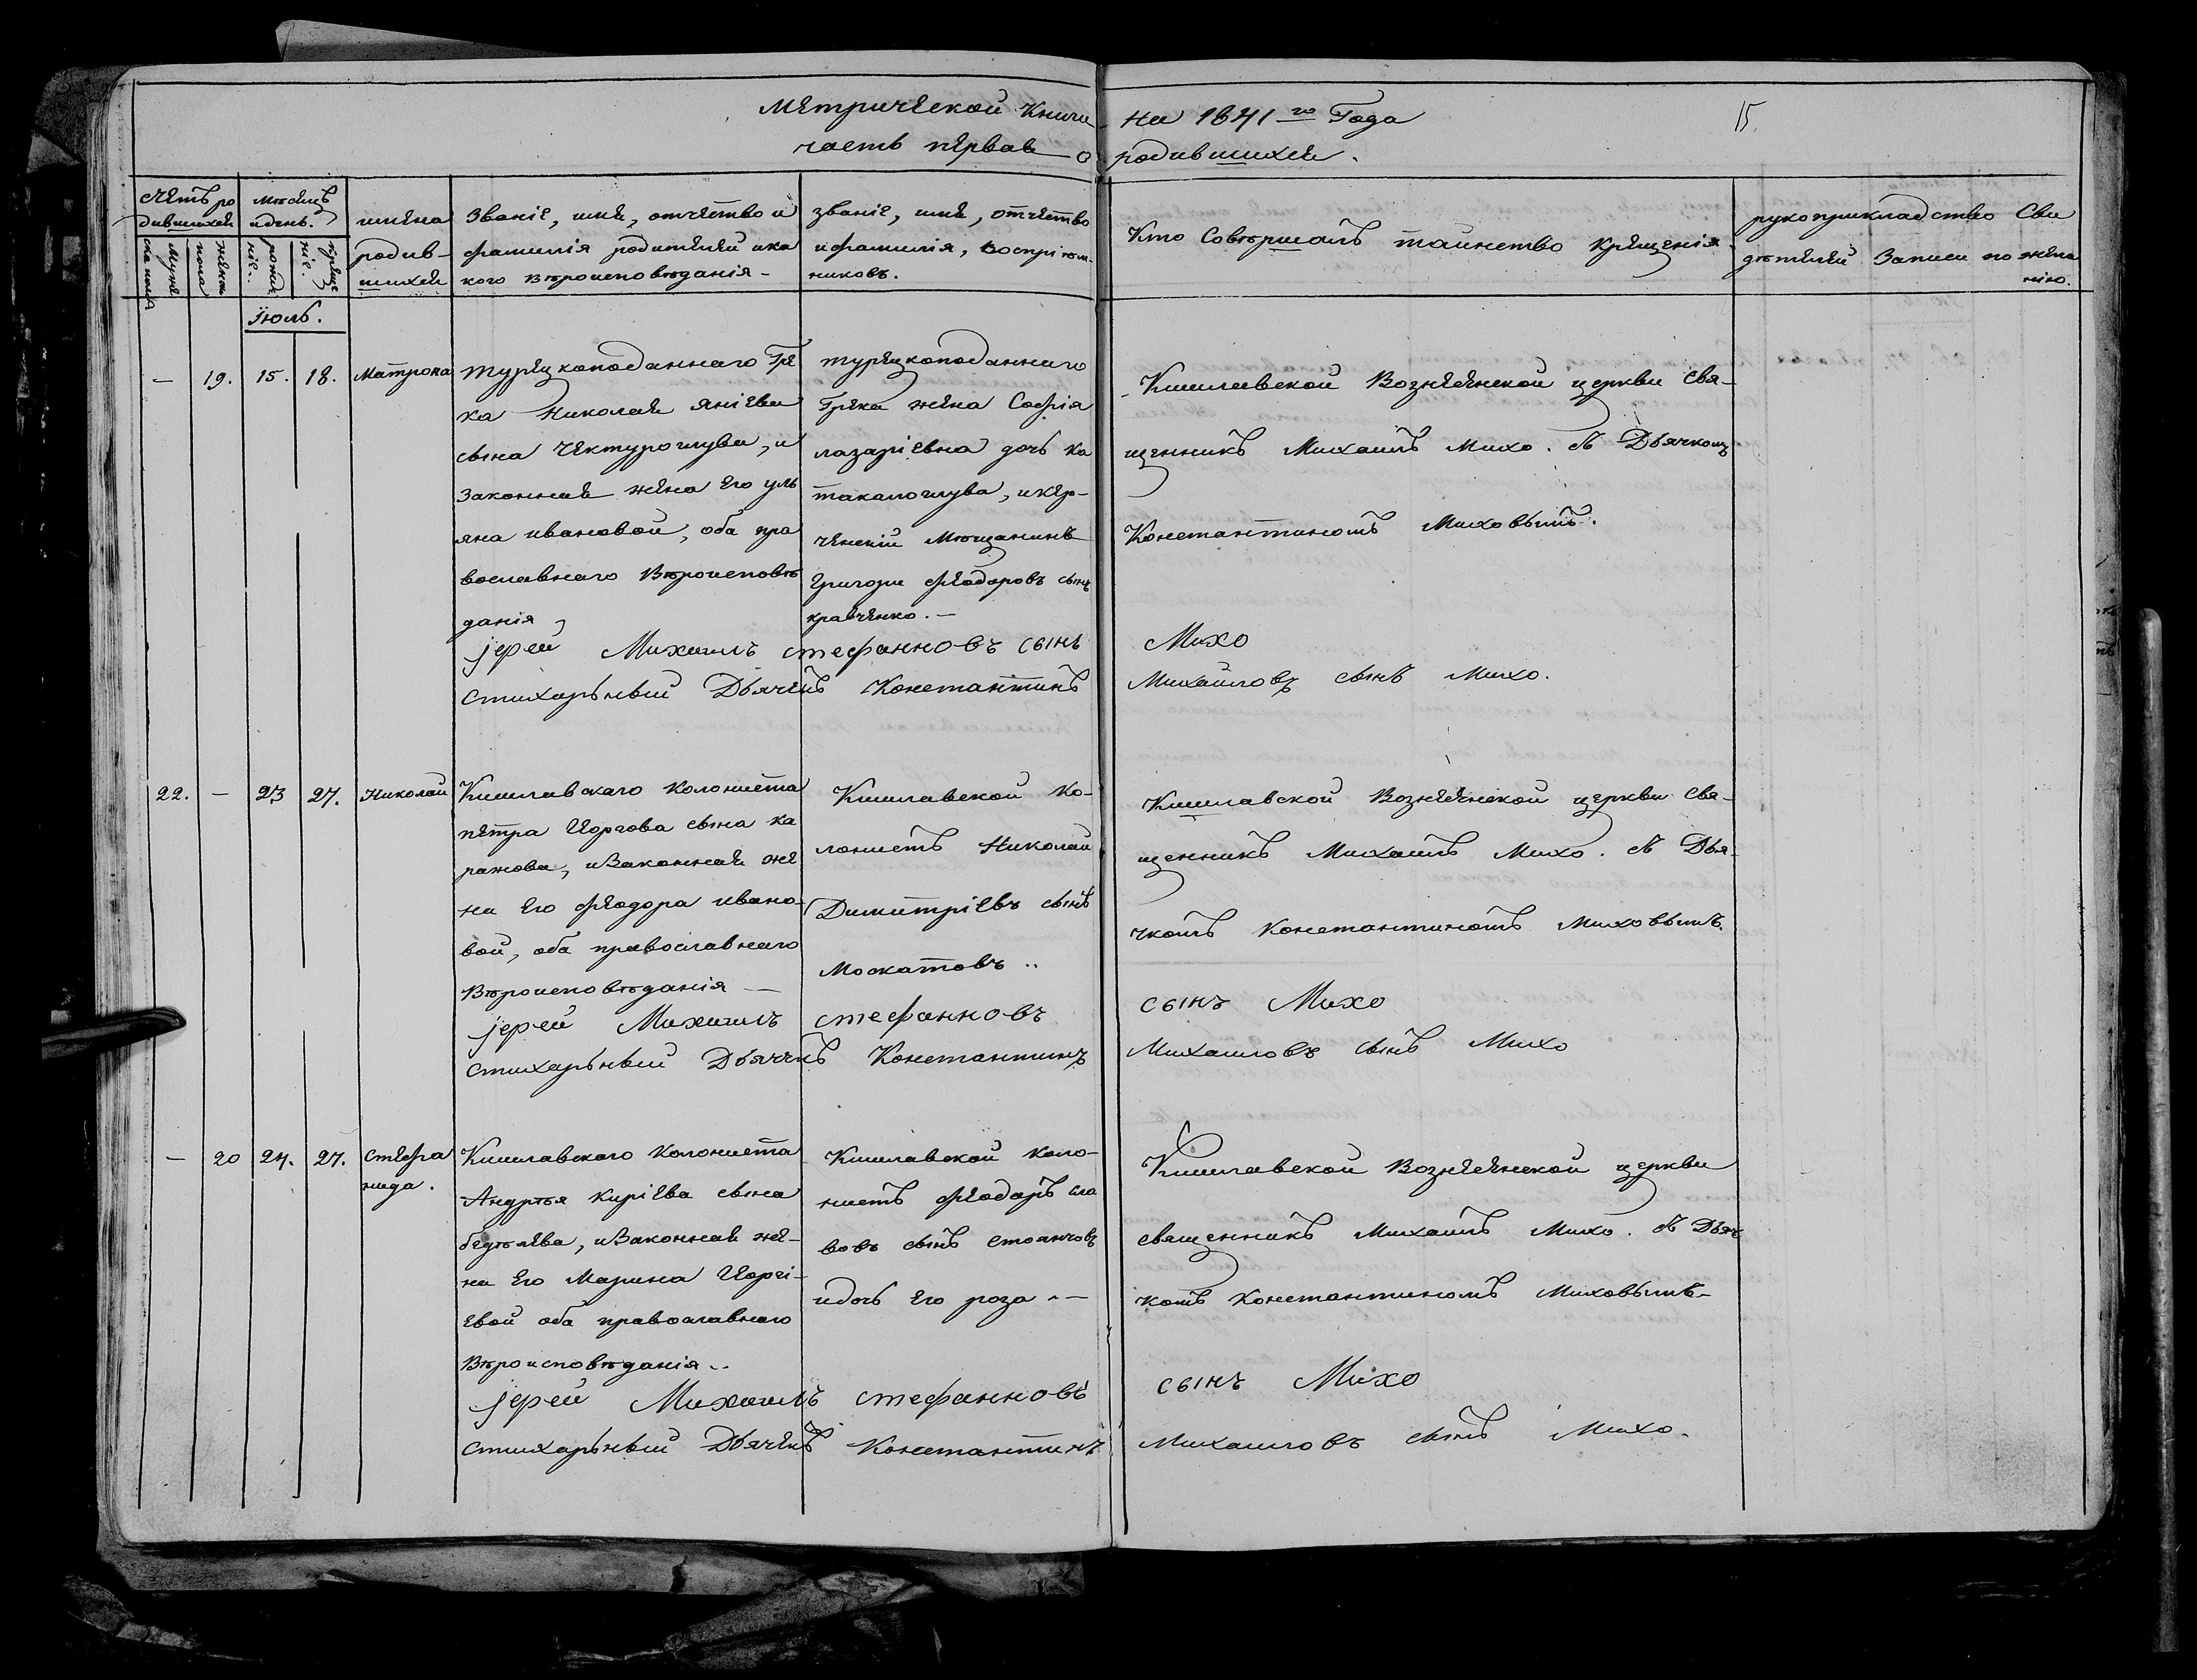 Метрической Книги на 1841го Года 15.
часть первая о родившихся.
Счетъ ро
дившихся
Мужескаго пола
женска пола
Мѣсяцъ
и день.
рожденіе.
крещеніе.
имена
родив-
шихся
Званіе, имя, отчество и
фамилія родителей и ка
кого вѣроисповѣданія-
званіе, имя, отчество
и фамилія, воспріем-
никовъ.
Кто Совершалъ таинство крещенія
рукоприкладство Сви
дѣтелей Записи по жела
нію.
Іюль.
— 19. 15. 18. Матрона
турецкоподаннаго Гре
ка Николая Яніева
сына Чектуроглува, и
Законная жена Его Уль
яна Ивановой, оба пра
вославнаго Вѣроисповѣ
данія
турецкоподаннаго
Грека жена Софія
лазаріевна дочь ка
такалоглува, и кер-
ченскій Мѣщанинъ
Григори Феодоровъ сынъ
кравченко.—
Кишлавской Вознесенской церкви Свя-
щенникъ Михаилъ Михо. съ Дьячкомъ
Константиномъ Миховымъ.
Іерей Михаилъ Стефанновъ сынъ Михо
Стихарьный Дьячекъ Константинъ Михайловъ сынъ Михо.
22. — 23 27. Николай
Кишлавскаго Колониста
петра Иоргова сына ка
ражова, и Законная же
на Его Феодора ивано-
вой, оба православнаго
Вѣроисповѣданія —
Кишлавской Ко-
лонистъ Николай
Димитріевъ сынъ
Москатовъ..
Кишлавской Вознесенской церкви Свя-
щенникъ Михаилъ Михо. съ Дья-
чкомъ Константиномъ Миховымъ.
Іерей Михаилъ Стефанновъ сынъ Михо
Стихарьный Дьячекъ Константинъ Михаиловъ сынъ Михо
— 20 24. 27. Стефа
нида.
Кишлавскаго Колониста
Андрѣя Киріева сына
, и Законная же-
на Его Марина Иоргі-
евой оба православнаго
Вѣроисповѣданія..
Кишлавской Коло-
нистъ Феодоръ сла
вовъ сынъ Стоянчовъ
и дочь Его роза.—
Кишлавской Вознесенской церкви
священникъ Михаилъ Михо. съ Дьяч
комъ Константиномъ Миховымъ-
Іерей Михаилъ Стефанновъ сынъ Михо
Стихарьный Дьячекъ Константинъ Михаиловъ сынъ Михо.